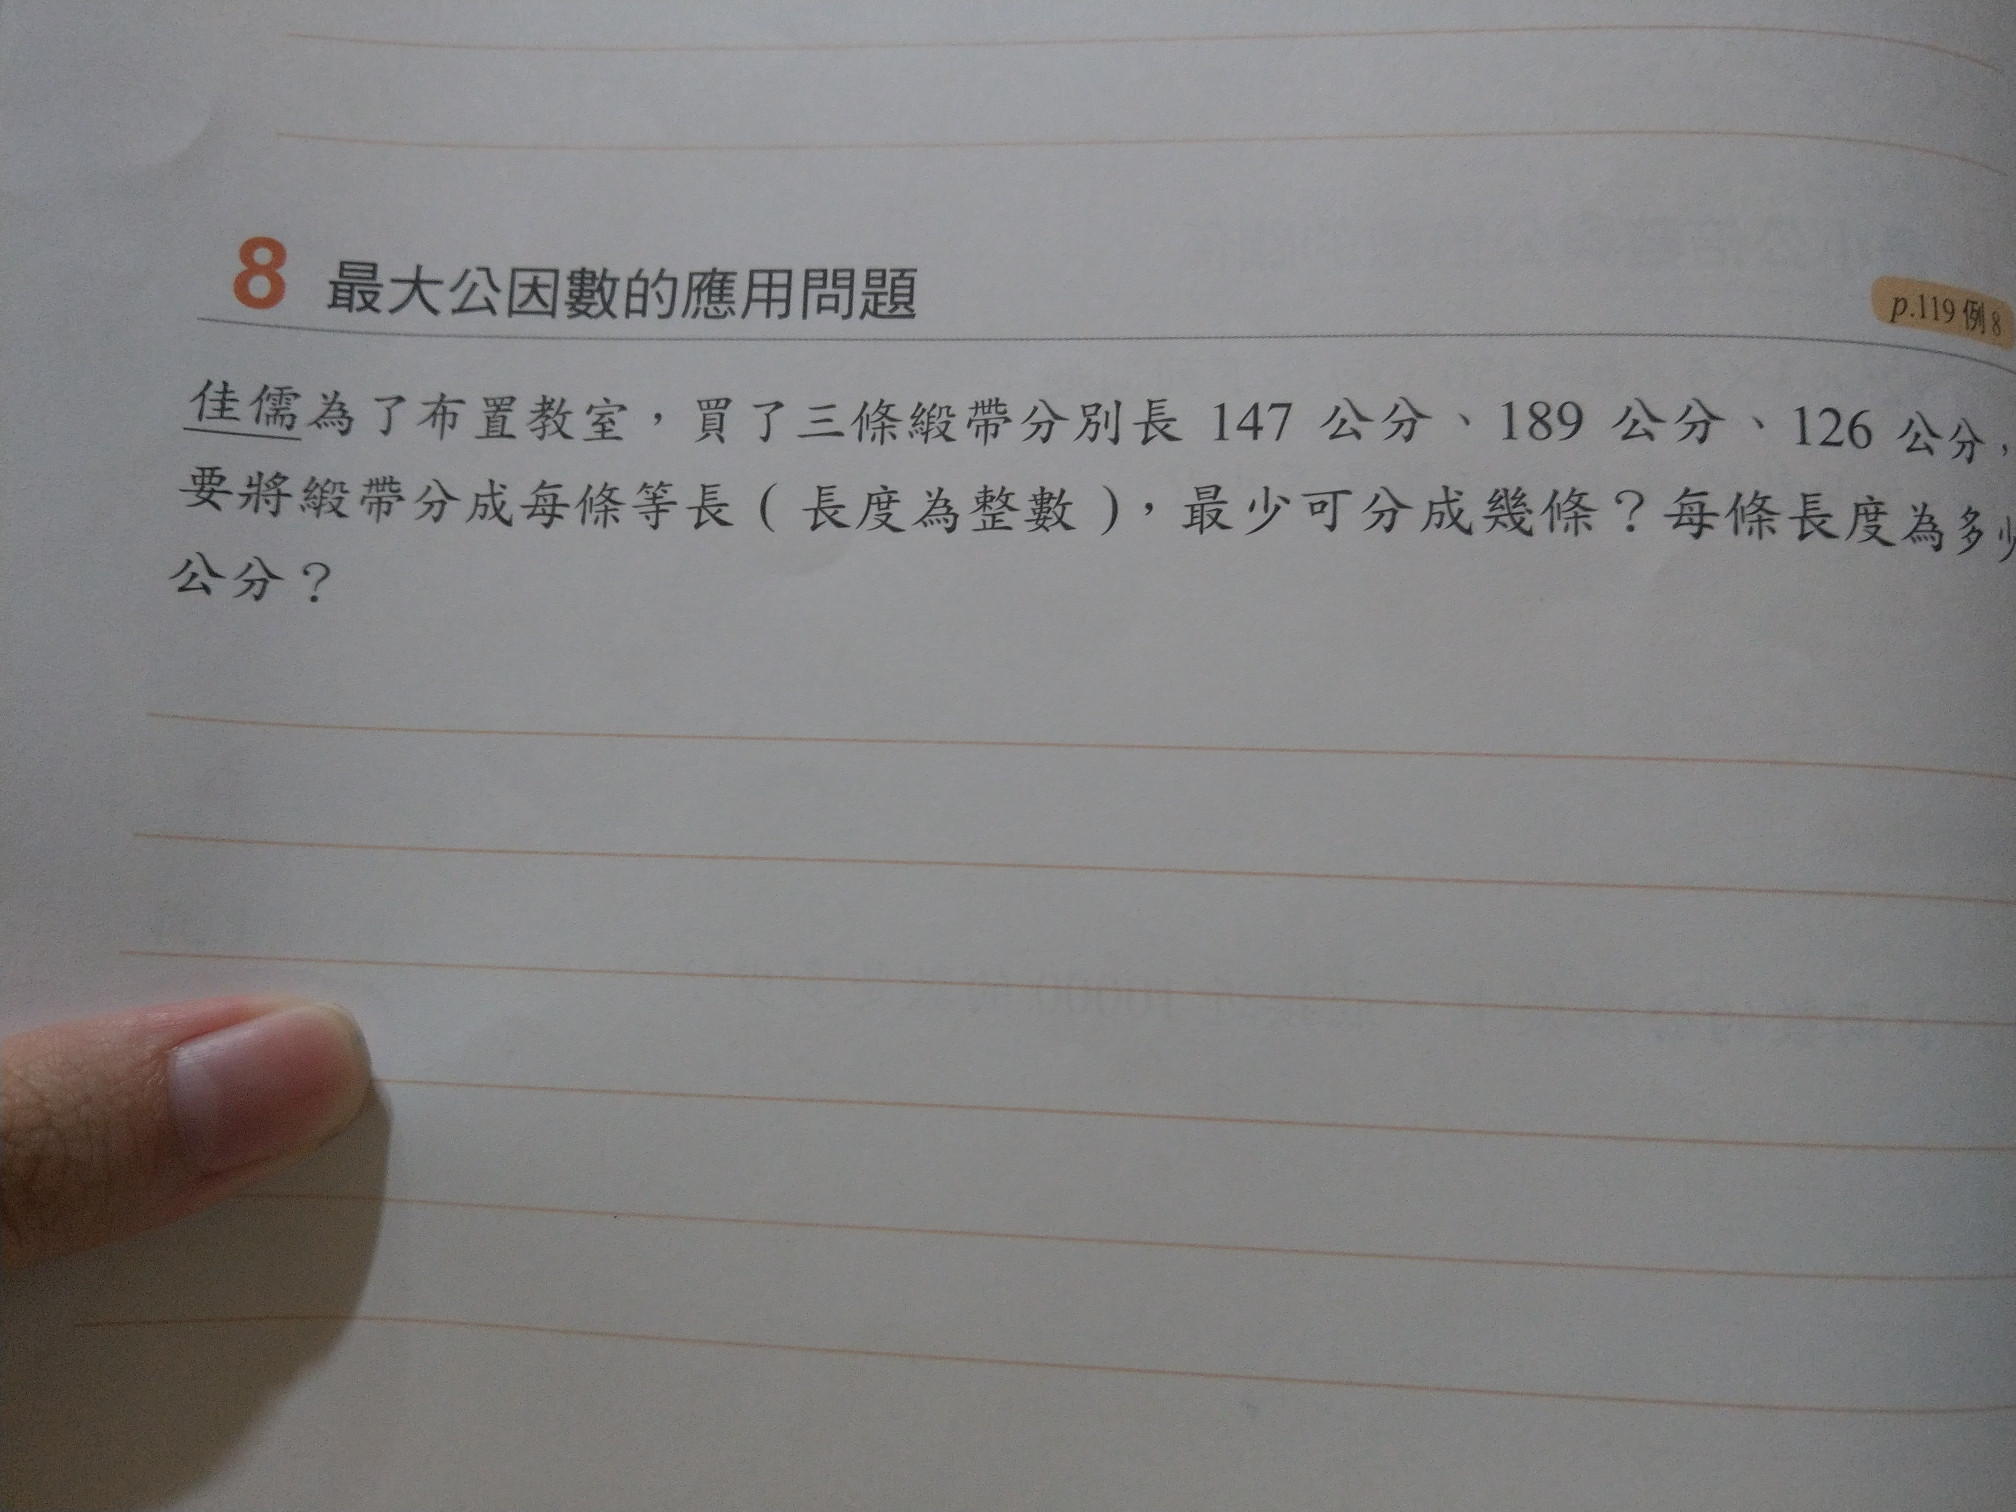 8 最大公因數的應用問題
p.119 例8
佳儒為了布置教室，買了三條緞帶分別長 147 公分、189 公分、126 公分，
要將緞帶分成每條等長（長度為整數），最少可分成幾條？每條長度為多少
公分？